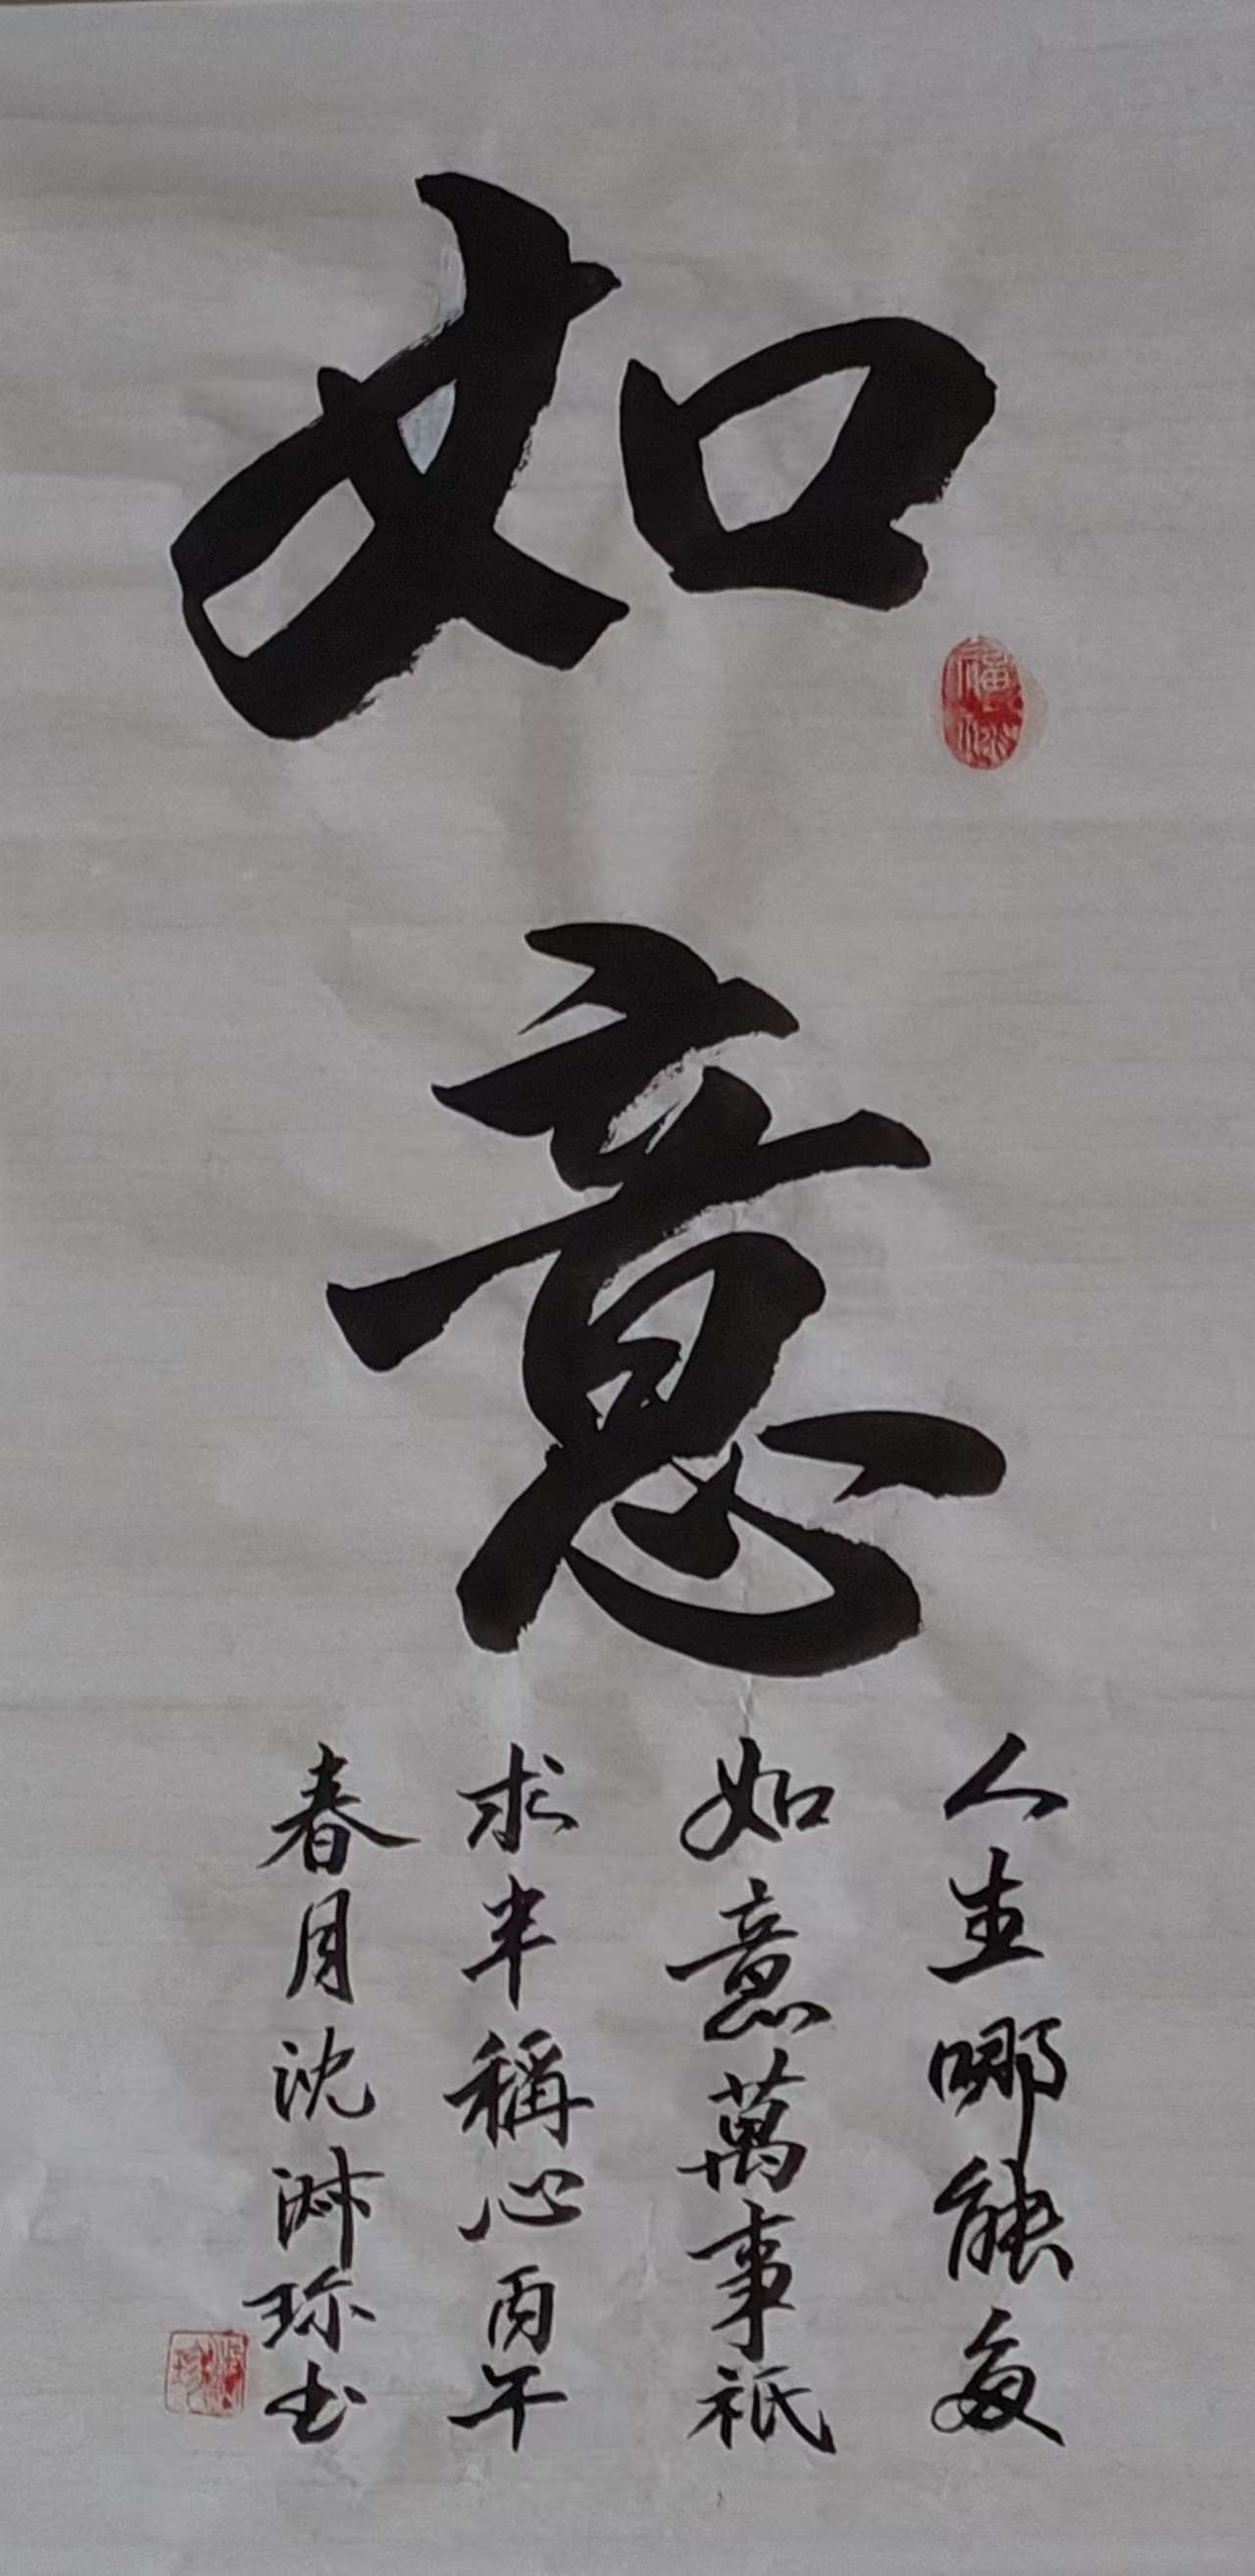 如
意
人生哪能多
如意萬事祇
求半稱心丙午
春月沈渊珎书